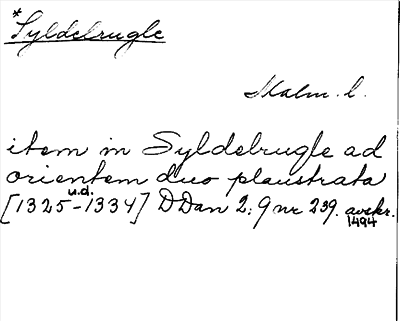 *Syldebrugle
Malm. l.
item in Syldebrugle ad
orientem duo plaustrata
u.d.
[1325-1334] DDan 2: 9 nr 239. avskr.
1494